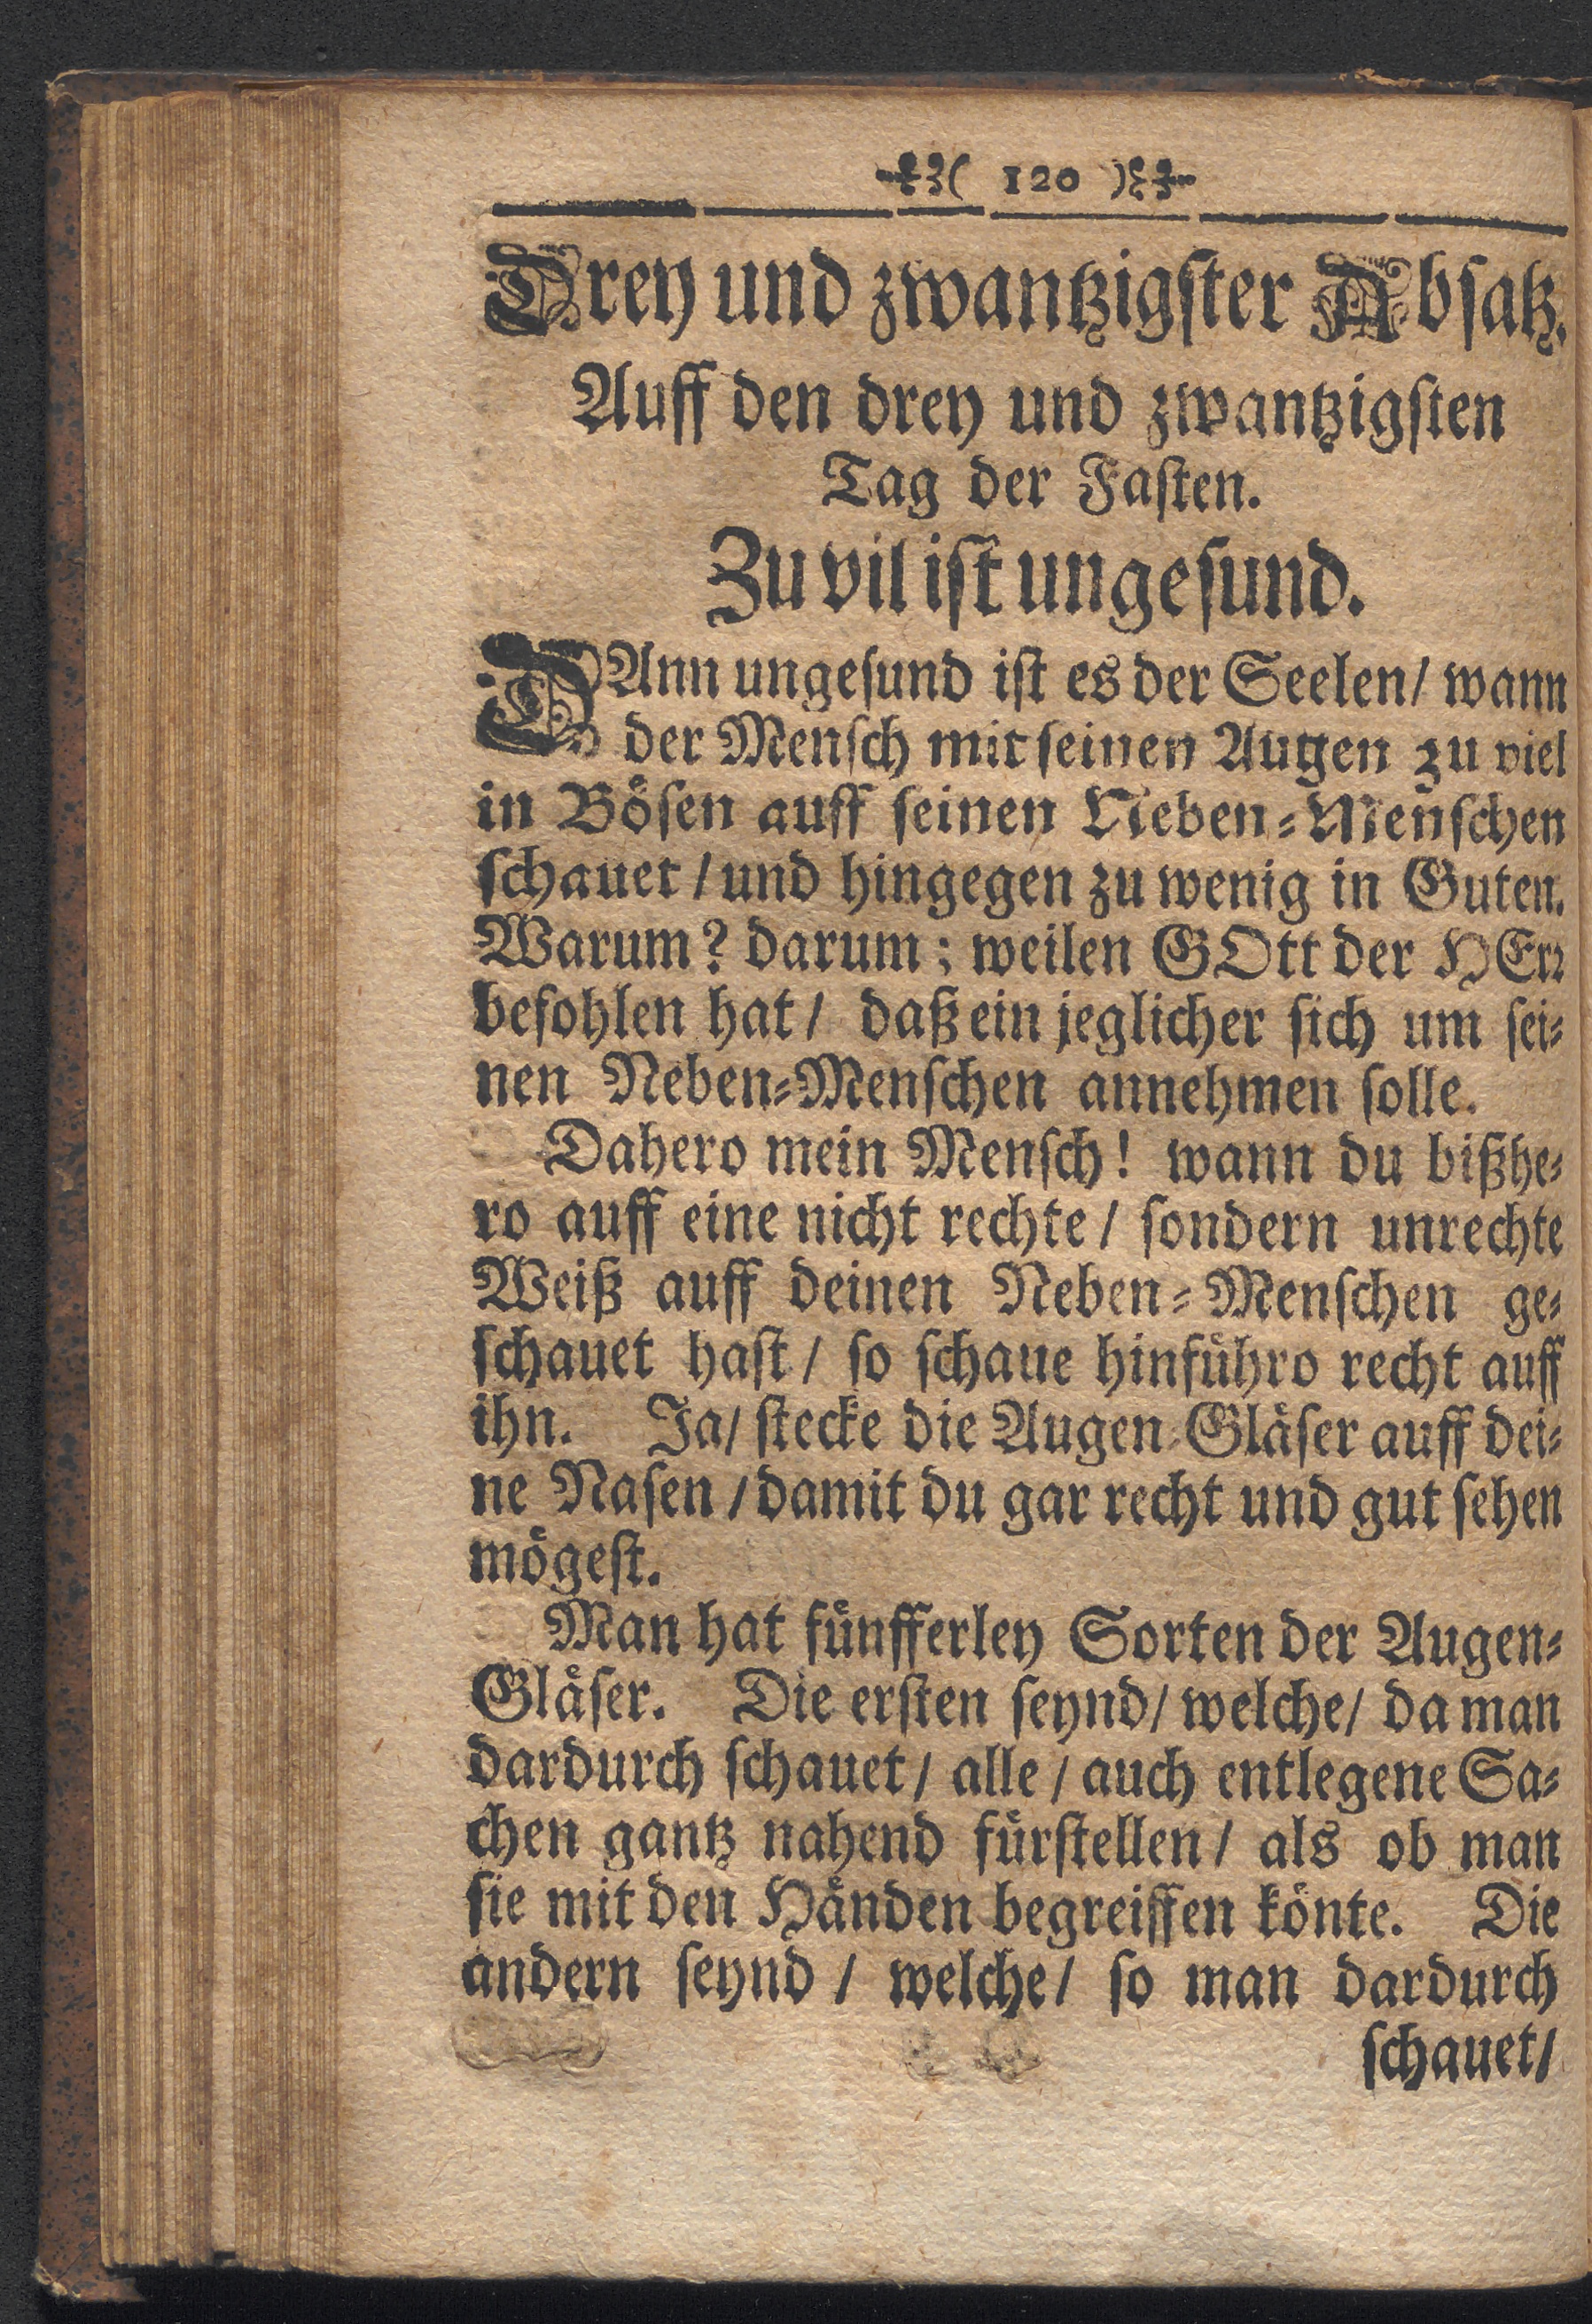 ( 120 )
Drey und zwantzigster Absatz.
Auff den drey und zwantzigsten
Tag der Fasten.
Zu vil ist ungesund.
DAnn ungesund ist es der Seelen / wann
der Mensch mit seinen Augen zu viel
in Bösen auff seinen Neben-Menschen
schauet / und hingegen zu wenig in Guten.
Warum? darum; weilen GOtt der HErr
befohlen hat / daß ein jeglicher sich um sei-
nen Neben-Menschen annehmen solle.
Dahero mein Mensch! wann du bißhe-
ro auff eine nicht rechte / sondern unrechte
Weiß auff deinen Neben-Menschen ge-
schauet hast / so schaue hinführo recht auff
ihn. Ja / stecke die Augen-Gläser auff dei-
ne Nasen / damit du gar recht und gut sehen
mögest.
Man hat fünfferley Sorten der Augen-
Gläser. Die ersten seynd / welche / da man
dardurch schauet / alle / auch entlegene Sa-
chen gantz nahend fürstellen / als ob man
sie mit den Händen begreiffen könte. Die
andern seynd / welche / so man dardurch
schauet /